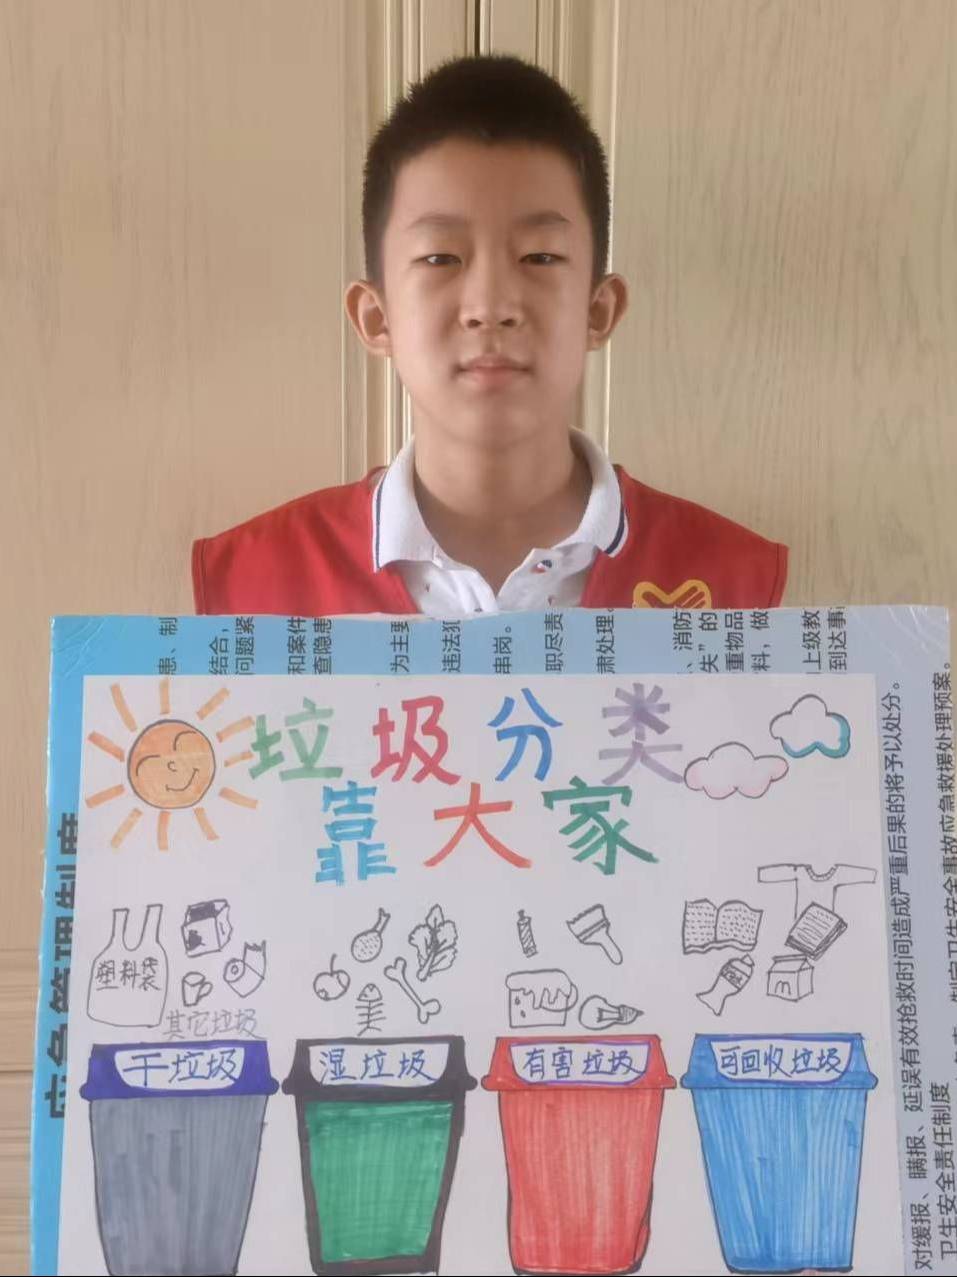 垃圾分类
靠大家
塑料袋
其它垃圾
干垃圾
湿垃圾
有害垃圾
可回收垃圾
患、制
结合，
问题紧
和案件
查隐患
为主要
违法犯
串岗。
职尽责
肃处理。
、消防
失”的
重物品
料，做
上级教
到达事
应急管理制度
对缓报、瞒报、延误有效抢救时间造成严重后果的将予以处分。
卫生安全责任制度
制定卫生安全事故应急救援处理预案。